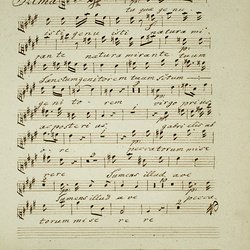 tu quae ge nu
isti genu isti natura mi
rante natura mirante tuum
Sanctum genitorem tuum Sctum
geni to rem virgo prius
ac posteri us gabri elis ab
o re peccatorum mise
rere Sumens illud ave
Sumens illud ave pecca
torum mise re re